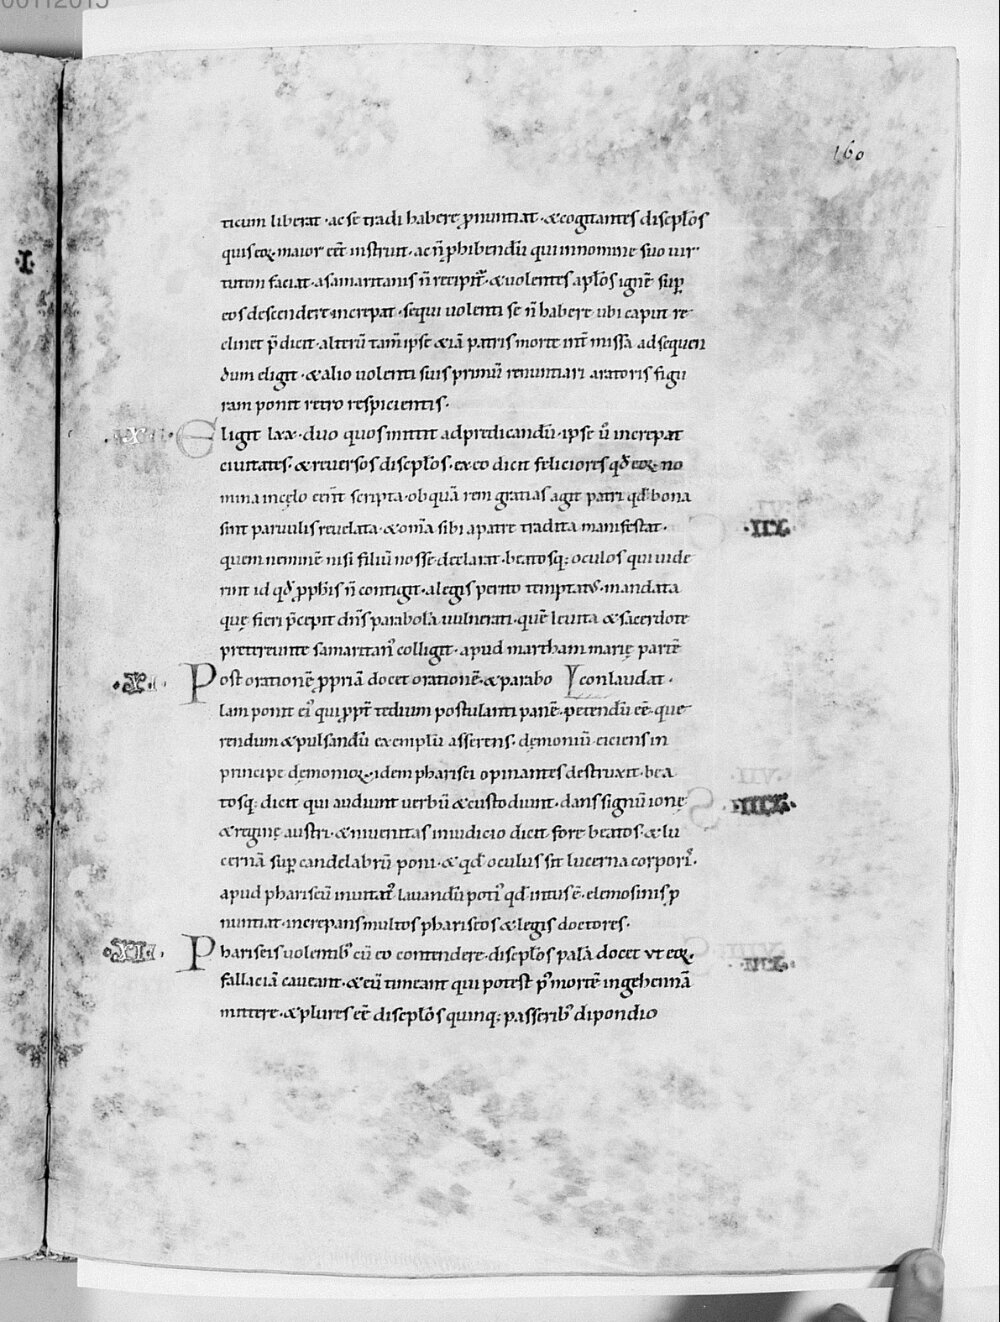 160
ticum liberat · ac se tradi habere p̱nuntiat · & cogitantes discpĺos
quis eoꝝ maior eēt instruit · ac n̄ ꝓhibendū qui in nomine suo uir
tutem faciat · a samaritanis n̄ recipit᷒ · & uolentes apĺos ignē sup̱
eos descendere increpat · sequi uolenti se n̄ habere ubi caput re
clinet p̄dicit · alterū tam̄ ipse & iā patris morte int̄missā ad sequen
dum eligit · & alio uolenti suis primū renuntiari aratoris figu
ram ponit retro respicientis ·
Eligit lxx · duo quos mittit ad predicandū · ipse ū increpat
ciuitates · & reuersos discpĺos · ex eo dicit feliciores qđ eoꝝ no
mina in cęlo erint̄ scripta · ob quā rem gratias agit patri qđ bona
sint paruulis reuelata · & om̄ia sibi a patre tradita manifestat ·
quem neminē nisi filiū nosse declarat · beatosq; oculos qui uide
rint id qđ ꝓphis n̄ contigit · a legis perito temptatus · mandata
quę fieri p̄cepit dn̄s parabola uulnerati · quē leuita & sacerdote
pretereunte samaritan᷒ colligit · apud martham marię partē
Post orationē ꝓpriā docet orationē · & parabo conlaudat ·
lam ponit ei᷒ qui ꝓpt̄ tedium postulanti panē · petendū eē · que
rendum & pulsandū exemplū asserens · demoniū eiciens in
principe dęmonioꝝ · idem pharisei opinantes destruxit · bea
tosq; dicit qui audiunt uerbū & custodiunt · dans signū ionę
& reginę austri · & niueuitas in iudicio dicit fore beatos · & lu
cernā sup̱ candelabrū poni · & qđ oculus sit lucerna corpori᷒ ·
apud phariseū inuitat᷒ lauandū poti᷒ qđ intus ē · elemosinis p̱
nuntiat · increpans multos phariseos & legis doctores ·
Phariseis uolentib᷒ cū eo contendere · discpĺos palā docet ut eoꝝ
fallaciā caueant · & eū timeant qui potest p᷒ mortē in gehennā
mittere · & plures eē discpĺos quinq; passerib᷒ dipondio
·X·I·
·XI·
·XII·
·XIII·